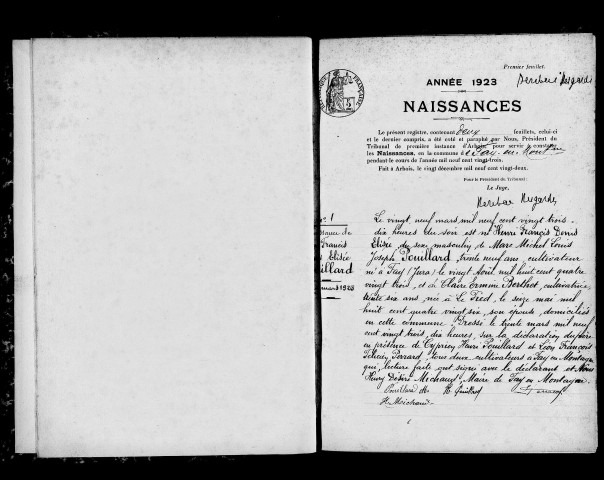 Premier feuillet.
ANNÉE 1923
NAISSANCES
Le présent registre, contenant deux feuillets, celui-ci
et le dernier compris, a été coté et paraphé par Nous, Président du
Tribunal de première instance d'Arbois, pour servir à constater
les Naissances, en la commune de Fay-en-Montagne
pendant le cours de l'année mil neuf cent vingt-trois.
Fait à Arbois, le vingt décembre mil neuf cent vingt-deux.
Pour le Président du Tribunal :
Le Juge,
N° 1
Francis
Elisée
illard
mars 1923
Le vingt neuf mars mil neuf cent vingt trois
dix heures du soir est né Henri Francis Denis
Elisée du sexe masculin de Marc Michel Louis
Joseph Pouillard, trente neuf ans, cultivateur
né à Fay (Jura) le vingt Aout mil huit cent quatre
vingt trois, et de Claire Ermine Berthet, cultivatrice
trente six ans, née à Le Pied, le seize mai mil
huit cent quatre vingt six, son épouse, domiciliés
en cette commune. Dressé le trente mars mil neuf
cent vingt trois, dix heures, sur la déclaration du père
en présence de Cyprien Henri Pouillard et Léon François
Parard, tous deux cultivateurs à Fay en Montagne
qui, lecture faite ont signé avec le déclarant et Nous
Henry Désiré Michaud, Maire de Fay en Montagne
Pouillard H. Pouillard
H. Michaud